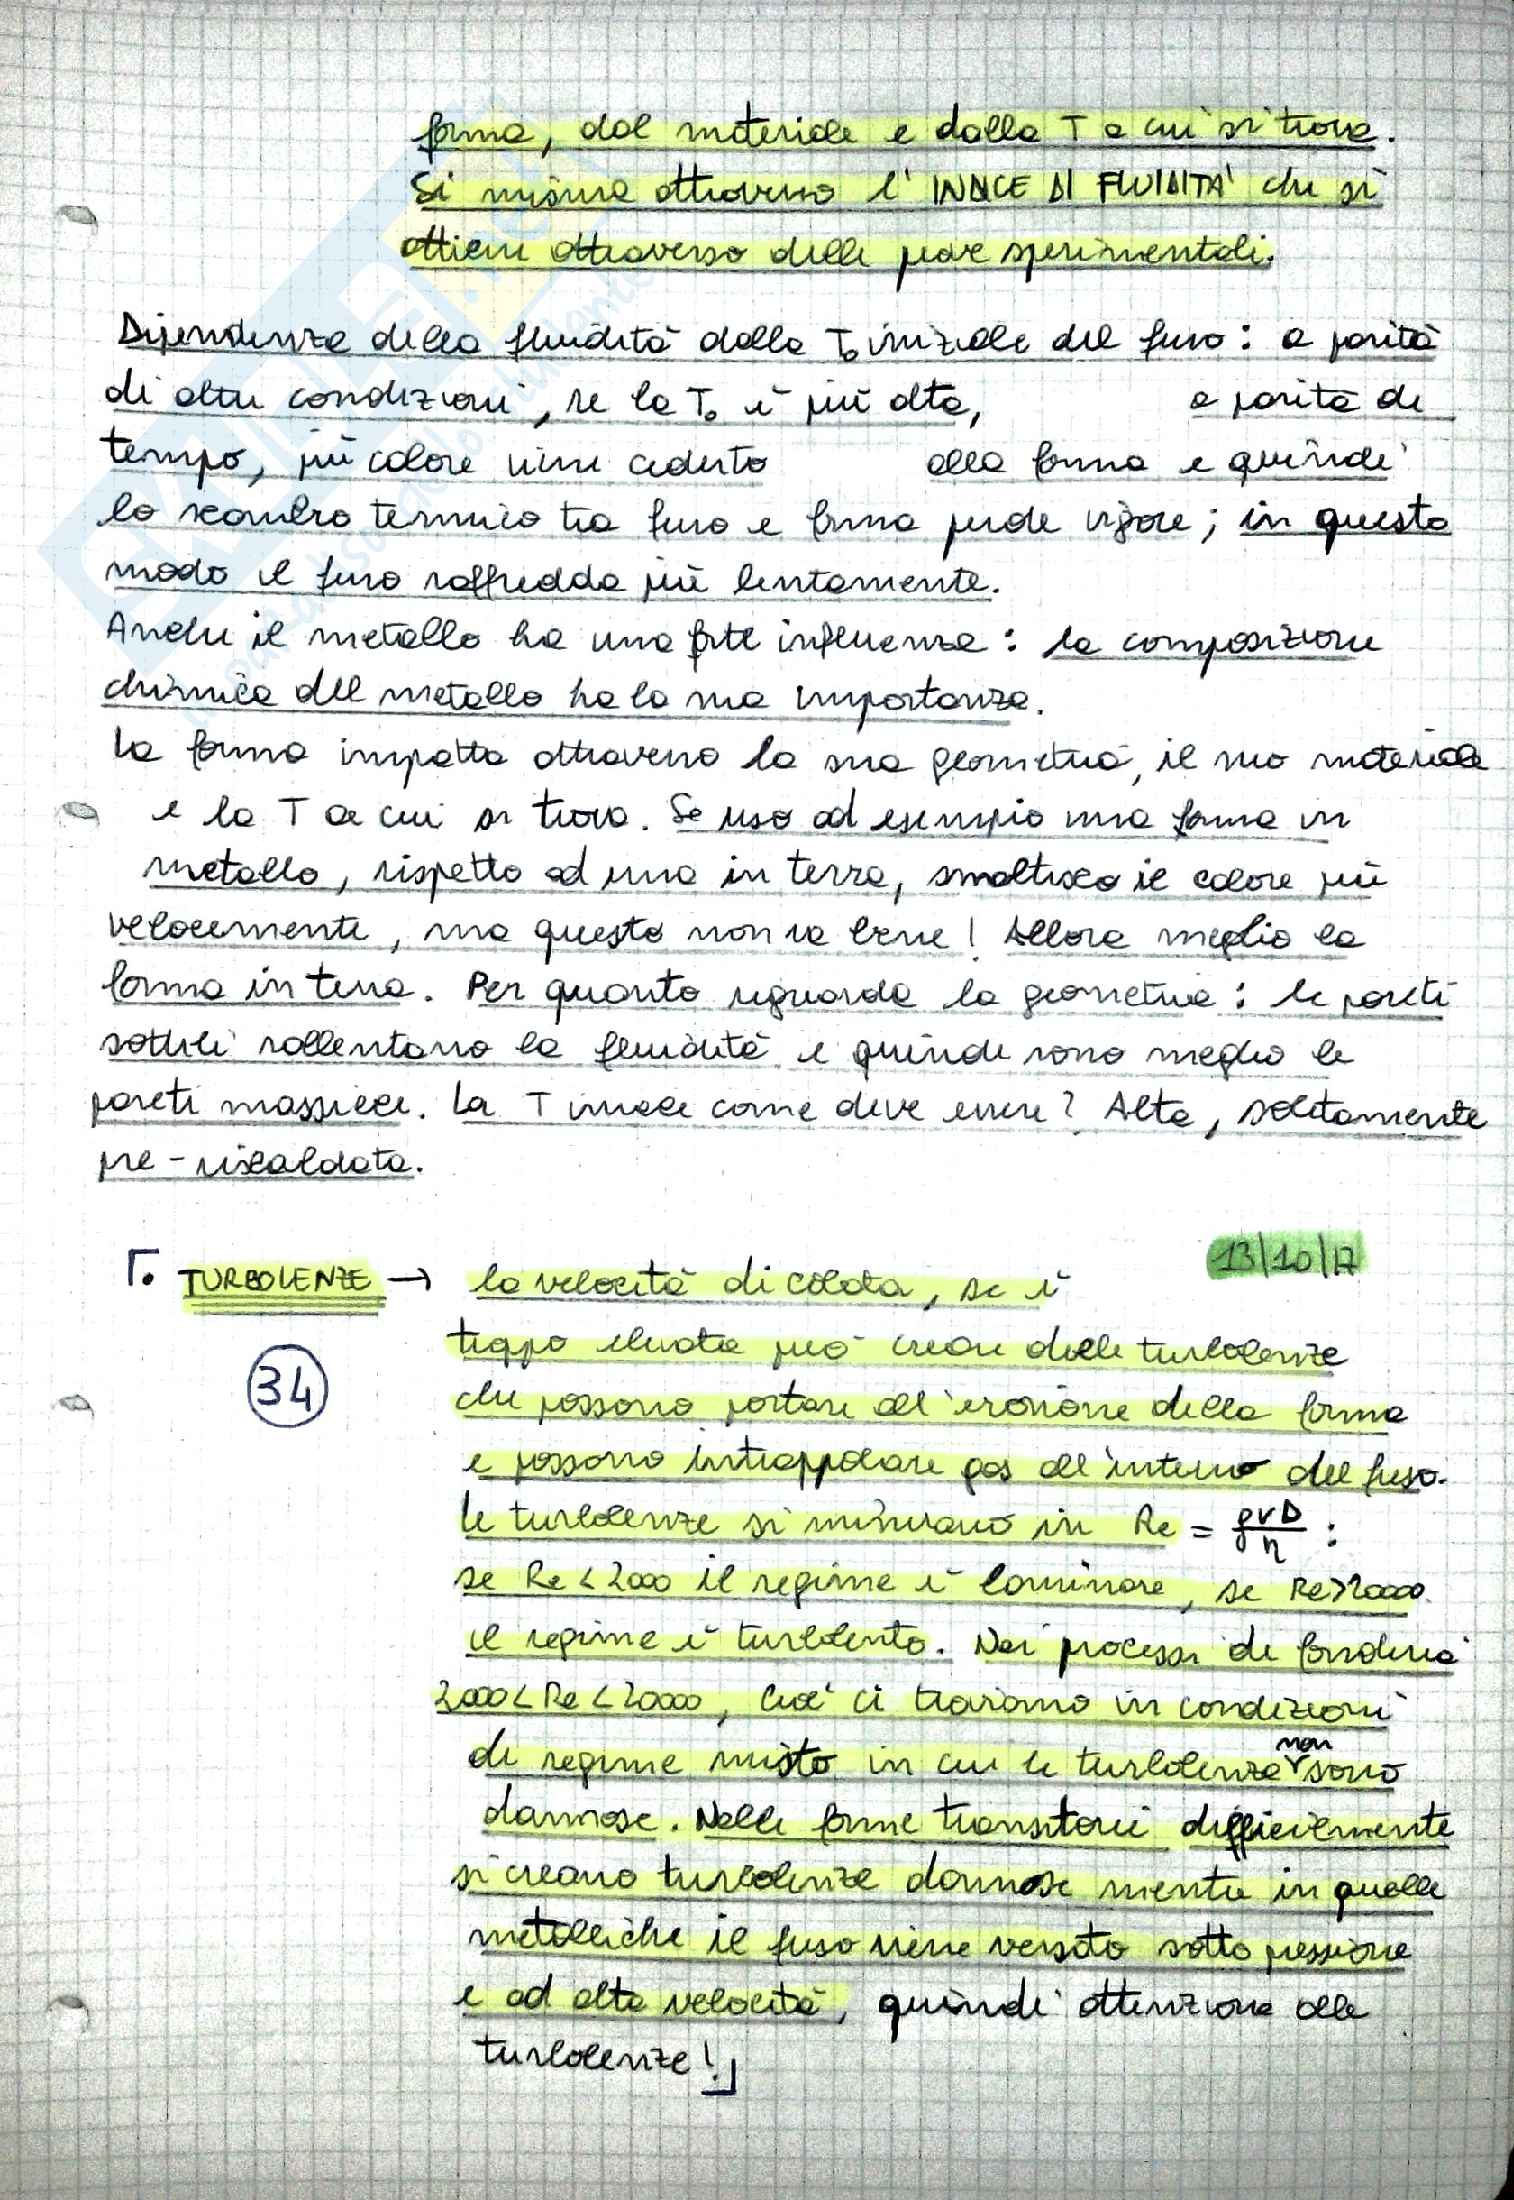 forma, dal materiale e dalla T a cui si trova.
Si misura attraverso l'INDICE DI FLUIDITA' che si
ottiene attraverso delle prove sperimentali.
Dipendenza della fluidità dalla T₀ iniziale del fuso: a parità
di altre condizioni, se la T₀ è più alta, a parità di
tempo, più calore viene ceduto alla forma e quindi
lo scambio termico tra fuso e forma perde vigore; in questo
modo il fuso raffredda più lentamente.
Anche il metallo ha una forte influenza: la composizione
chimica del metallo ha la sua importanza.
La forma impatta attraverso la sua geometria, il suo materiale
e la T a cui si trova. Se uso ad esempio una forma in
metallo, rispetto ad una in terra, smaltisco il calore più
velocemente, ma questo non va bene! Allora meglio la
forma in terra. Per quanto riguarda la geometria: le pareti
sottili rallentano la fluidità e quindi sono meglio le
pareti massicce. La T invece come deve essere? Alta, solitamente
pre-riscaldata.
13/10/17
TURBOLENZE → la velocità di colata, se è
troppo elevata può creare delle turbolenze
34
che possono portare all'erosione della forma
e possono intrappolare gas all'interno del fuso.
Le turbolenze si misurano in Re = ρvD/η :
se Re < 2000 il regime è laminare, se Re > 20000
il regime è turbolento. Nei processi di fonderia
2000 < Re < 20000, cioè ci troviamo in condizioni
di regime misto in cui le turbolenze non sono
dannose. Nelle forme transitorie difficilmente
si creano turbolenze dannose mentre in quelle
metalliche il fuso viene versato sotto pressione
e ad alta velocità, quindi attenzione alle
turbolenze!